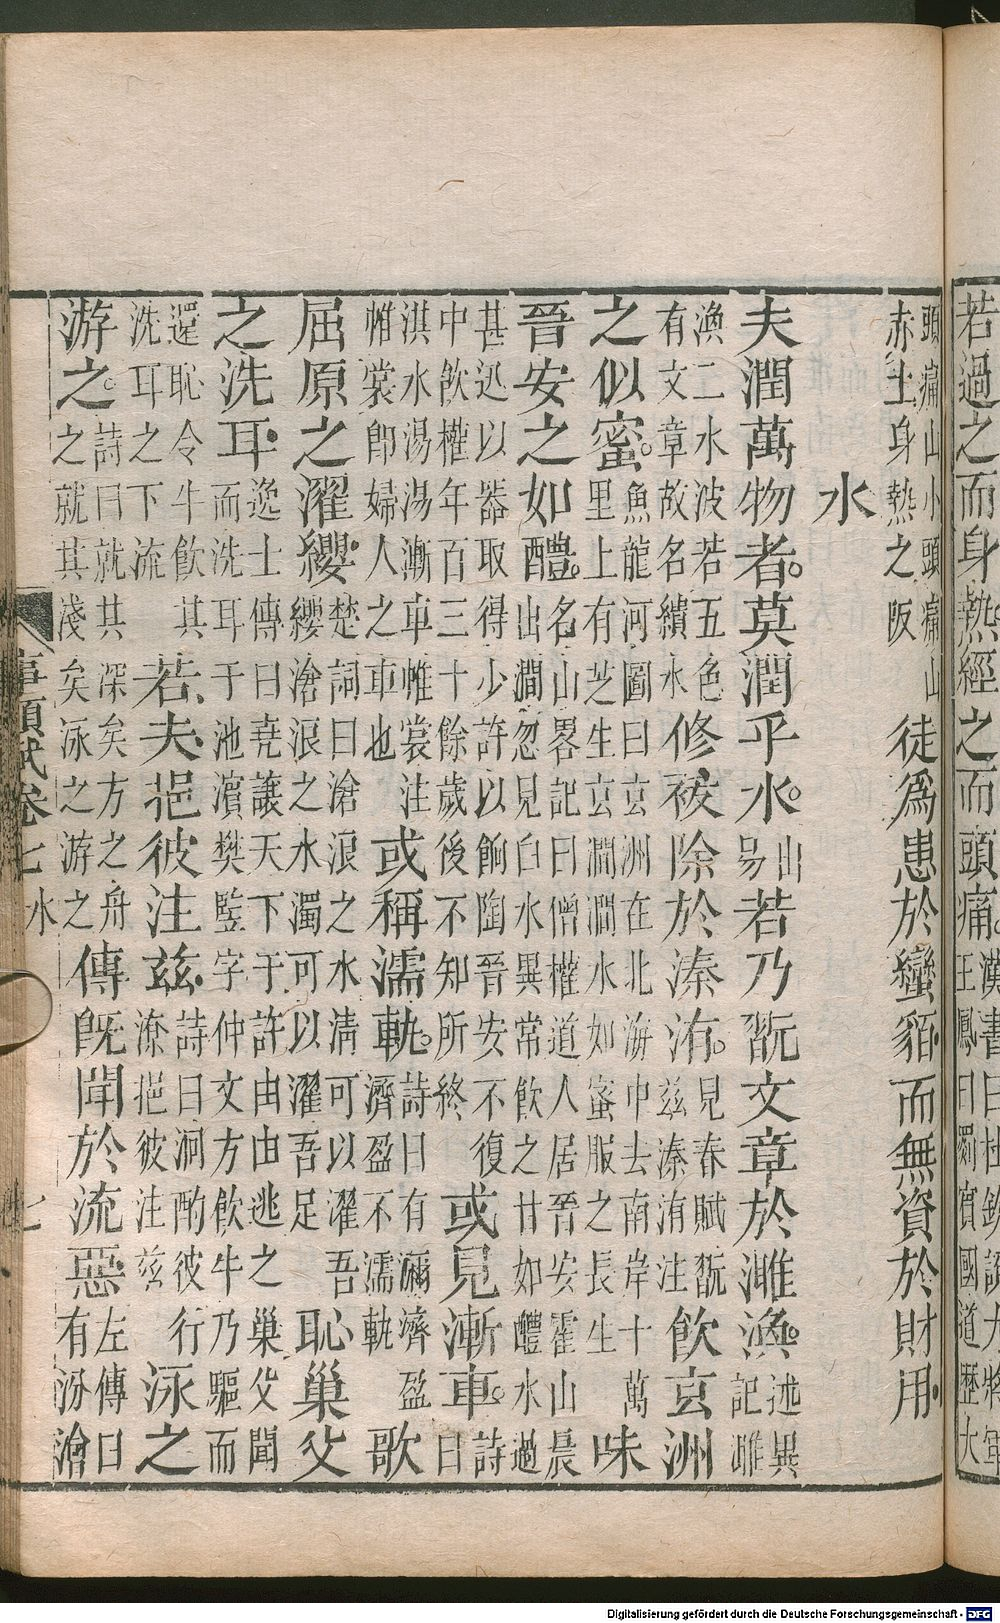 若過之而身熱經之而頭痛漢書曰杜欽說大將軍王鳳曰罽賓國道歷大
頭痛山小頭痛山赤土身熱之阪徒爲患於蠻貊而無資於財用
水
夫潤萬物者莫潤乎水易山若乃翫文章於濉渙述異記濉
渙二水波若五色有文章故名繢水修祓除於溱洧見春賦翫茲溱洧注飲玄洲
之似蜜魚龍河圖曰玄洲在北海中去南岸十萬里上有芝生玄澗澗水如蜜服之長生味
晉安之如醴名山畧記曰僧權道人居晉安霍山晨出澗忽見白水異常飲之甘如醴水過
甚迅以器取得少許以餉陶晉安不復中飲權年百三十餘歲後不知所終或見漸車詩曰
淇水湯湯漸車帷裳注帷裳卽婦人之車也或稱濡軌詩曰有瀰濟盈濟盈不濡軌歌
屈原之濯纓楚詞曰滄浪之水清可以濯吾纓滄浪之水濁可以濯吾足恥巢父
之洗耳逸士傳曰堯讓天下于許由由逃之巢父聞而洗耳于池濱樊䜿字仲文方飲牛乃驅而
還恥令牛飲其洗耳之下流若夫挹彼注兹詩曰泂酌彼行潦挹彼注兹泳之
游之詩曰就其深矣方之舟之就其淺矣泳之游之傳旣聞於流惡左傳曰有汾澮
事類賦卷七 水 七
Digitalisierung gefördert durch die Deutsche Forschungsgemeinschaft - DFG